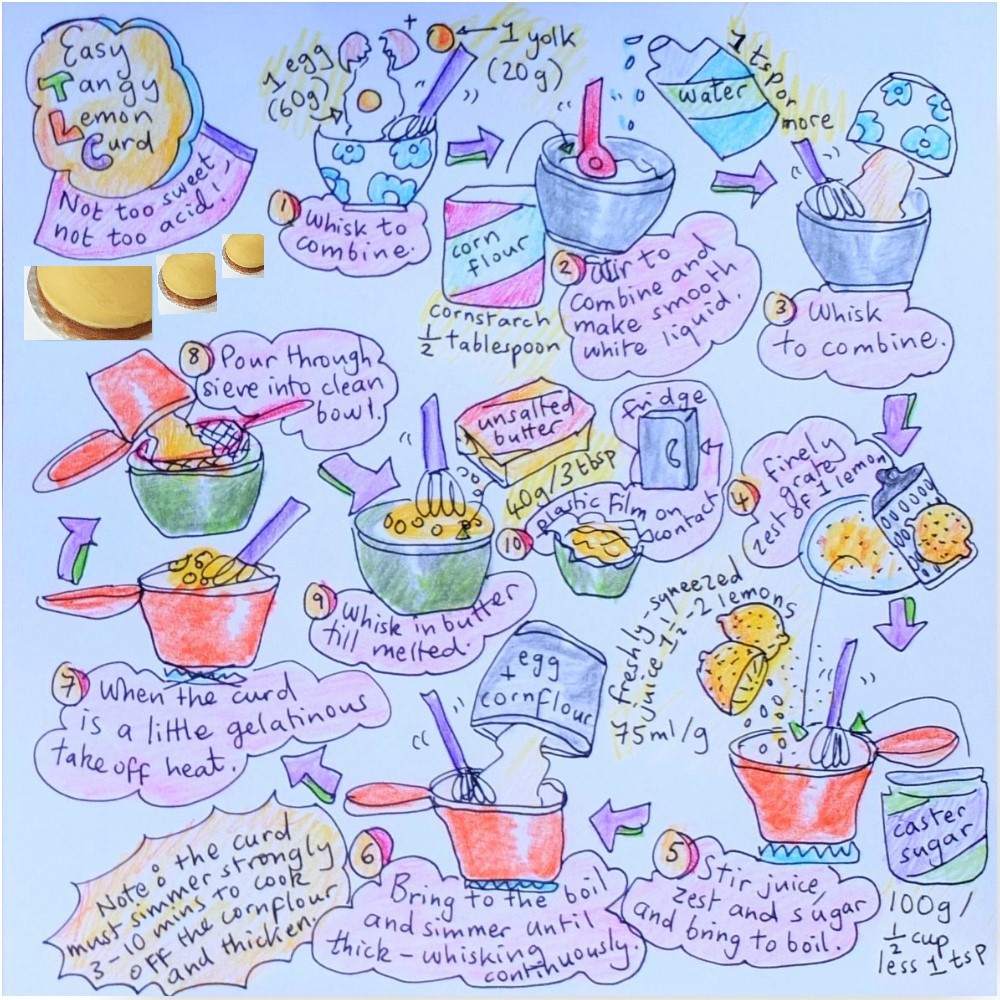 Easy
Tangy
Lemon
Curd
Not too sweet,
not too acid!
1 egg
(60g)
+
1 yolk
(20g)
1 Whisk to
combine.
corn
flour
cornstarch
1/2 tablespoon
water
1 tsp or
more
2 Stir to
combine and
make smooth
white liquid.
3 Whisk
to combine.
4 finely
grate
zest of 1 lemon
freshly-squeezed
juice 1 1/2-2 lemons
75ml/g
caster
sugar
100g/
1/2 cup
less 1 tsp
5 Stir juice,
zest and sugar
and bring to boil.
egg
+
cornflour
6 Bring to the boil
and simmer until
thick - whisking
continuously.
Note: the curd
must simmer strongly
3-10 mins to cook
off the cornflour
and thicken.
7 When the curd
is a little gelatinous
take off heat.
8 Pour through
sieve into clean
bowl.
unsalted
butter
40g/3 tbsp
9 Whisk in butter
till melted.
fridge
10 plastic film on
contact